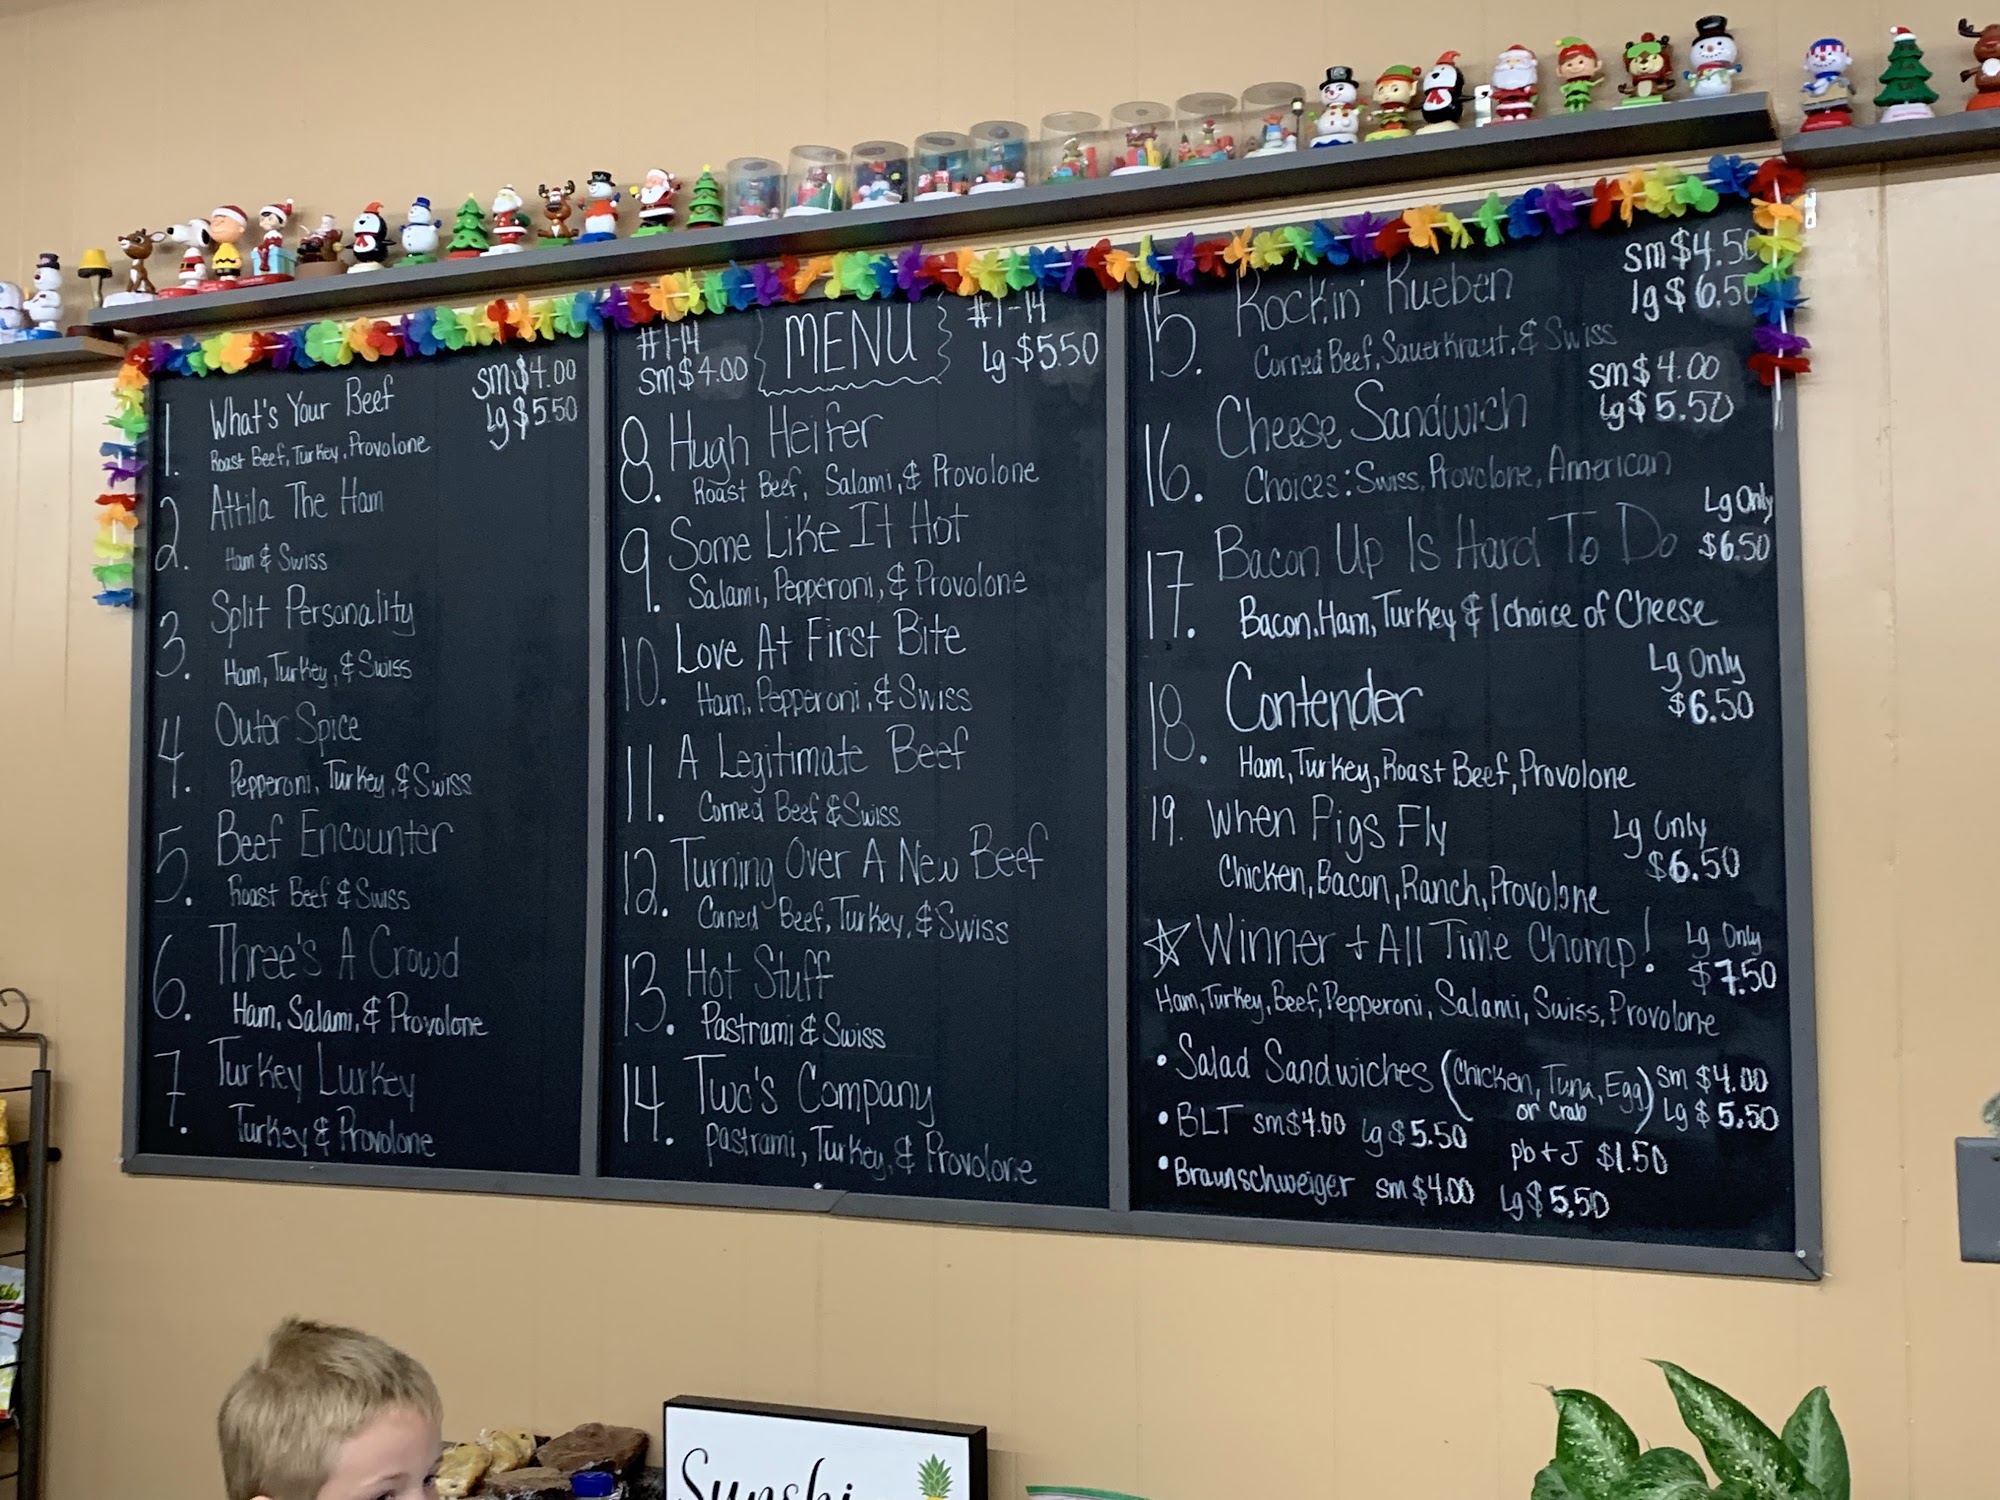 1. What's Your Beef sm $4.00
Roast Beef, Turkey, Provolone lg $5.50
2. Attila The Ham
Ham & Swiss
3. Split Personality
Ham, Turkey, & Swiss
4. Outer Spice
Pepperoni, Turkey, & Swiss
5. Beef Encounter
Roast Beef & Swiss
6. Three's A Crowd
Ham, Salami, & Provolone
7. Turkey Lurkey
Turkey & Provolone
#1-14 MENU #1-14
sm $4.00 Lg $5.50
8. Hugh Heifer
Roast Beef, Salami, & Provolone
9. Some Like It Hot
Salami, Pepperoni, & Provolone
10. Love At First Bite
Ham, Pepperoni, & Swiss
11. A Legitimate Beef
Corned Beef & Swiss
12. Turning Over A New Beef
Corned Beef, Turkey, & Swiss
13. Hot Stuff
Pastrami & Swiss
14. Two's Company
Pastrami, Turkey, & Provolone
15. Rockin' Rueben sm $4.50
lg $6.50
Corned Beef, Sauerkraut, & Swiss
16. Cheese Sandwich sm $4.00
lg $5.50
Choices: Swiss, Provolone, American
17. Bacon Up Is Hard To Do Lg Only
$6.50
Bacon, Ham, Turkey & 1 choice of Cheese
18. Contender Lg Only
$6.50
Ham, Turkey, Roast Beef, Provolone
19. When Pigs Fly Lg Only
$6.50
Chicken, Bacon, Ranch, Provolone
☆ Winner + All Time Chomp! Lg Only
$7.50
Ham, Turkey, Beef, Pepperoni, Salami, Swiss, Provolone
• Salad Sandwiches (Chicken, Tuna, Egg) sm $4.00
or crab Lg $5.50
• BLT sm $4.00 lg $5.50 pb + J $1.50
• Braunschweiger sm $4.00 Lg $5.50